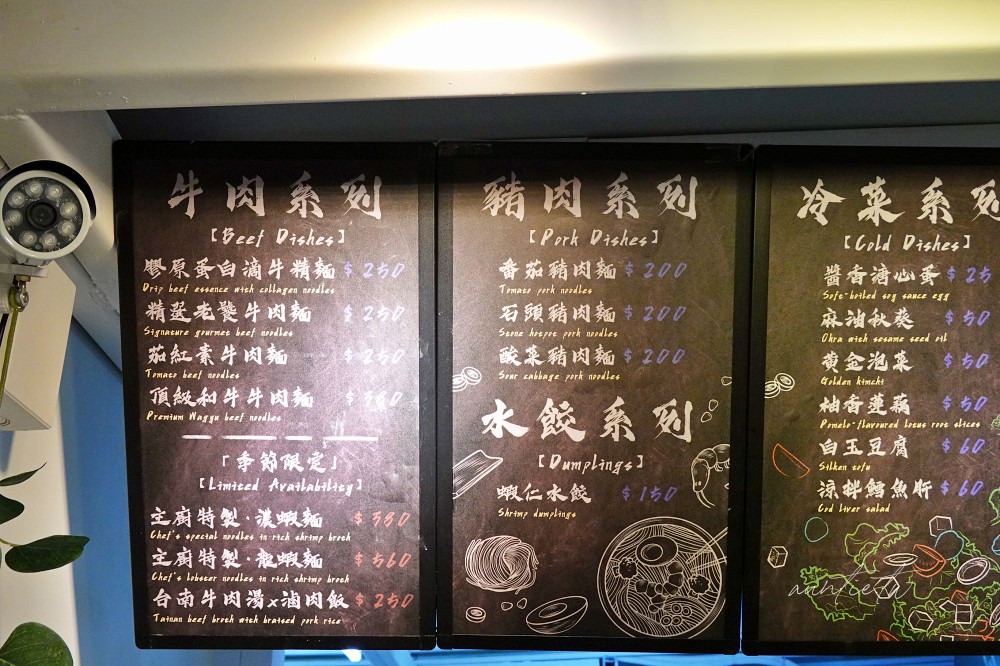 牛肉系列
【Beef Dishes】
膠原蛋白滴牛精麵 $250
Drip beef essence with collagen noodles
精選老饕牛肉麵 $250
Signature gourmet beef noodles
茄紅素牛肉麵 $250
Tomato beef noodles
頂級和牛牛肉麵 $
Premium Wagyu beef noodles
「季節限定」
【Limited Availability】
主廚特製·濃蝦麵 $330
Chef's special noodles in rich shrimp broth
主廚特製·龍蝦麵 $560
Chef's lobster noodles in rich shrimp broth
台南牛肉湯x滷肉飯 $250
Tainan beef broth with braised pork rice
豬肉系列
【Pork Dishes】
番茄豬肉麵 $200
Tomato pork noodles
石頭豬肉麵 $200
Stone hotpot pork noodles
酸菜豬肉麵 $200
Sour cabbage pork noodles
水餃系列
【Dumplings】
蝦仁水餃 $150
Shrimp dumplings
冷菜系列
【Cold Dishes】
醬香溏心蛋 $25
Soft-boiled soy sauce egg
麻油秋葵 $50
Okra with sesame seed oil
黄金泡菜 $50
Golden kimchi
柚香蓮藕 $50
Pomelo-flavoured lotus root slices
白玉豆腐 $60
Silken tofu
涼拌鱈魚肝 $60
Cod liver salad